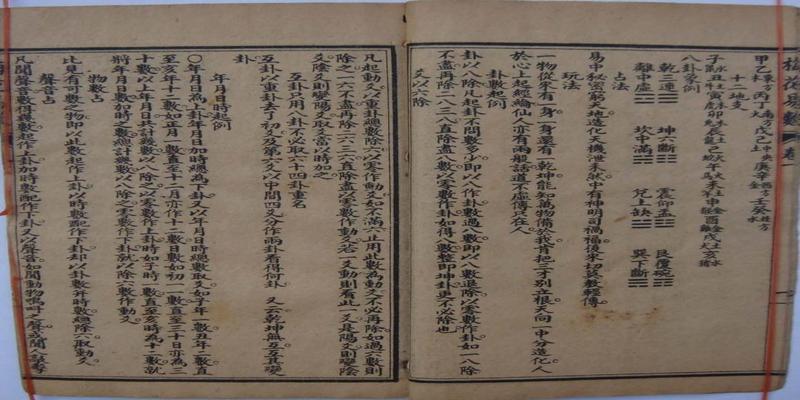 梅花易數 卷一
甲乙東方木丙丁南方火戊己中央土庚辛西方金壬癸北方水
十二地支
八卦象例
乾三連☰ 坤六斷☷ 震仰盂☳ 艮覆碗☶
離中虛☲ 坎中滿☵ 兌上缺☱ 巽下斷☴
占法
易中秘密窮天地造化天機泄未然中有神明司禍福後來切莫教輕傳
玩法
一物從來有一身一身還有一乾坤能知萬物備於我肯把三才別立根天向一中分造化人
於心上起經綸仙人亦有兩般話道不虛傳只在人
卦數起例
卦以八除凡起卦不問數多少即以八作卦數過八數即以八數退除以零數作卦如一八除
不盡再除二八三八直除盡八數以零數作卦如得八數整即坤卦更不必除也
爻以六除
凡起動爻以重卦總數除六以零作動爻如不滿六止用此數為動爻不必再除如過六數則
除之一六不盡再除二六三六直除盡以零數作動爻若一爻動則看此一爻是陽爻則變陰
爻陰爻則變陽爻取爻當以時加之
互卦起例
互卦只用八卦不必取六十四卦重名
互卦以重卦去了初爻及第六爻以中間四爻分作兩卦看得何卦 又云乾坤無互互其變
卦
年月日時起例
〇年月日為上卦年月日加時總為下卦又以年月日時總數取爻如子年一數丑年二數直
至亥年十二數如正月一數直至十二月亦作十二數日數如初一一數直至三十日亦為三
十數以上年月日共計幾數以八除之以零數作上卦時如子時一數直至亥時為十二數就
將年月日數加時之數總計幾數以八除之零數作下卦就以除六數作動爻
物數占
比見有可數之物即以此數起作上卦以時數配作下卦却以卦數并時數總除六取動爻
聲音占
凡聞聲音數得幾數起作上卦加時數配作下卦又以聲音如聞動物鳴叫之聲或聞人敲擊